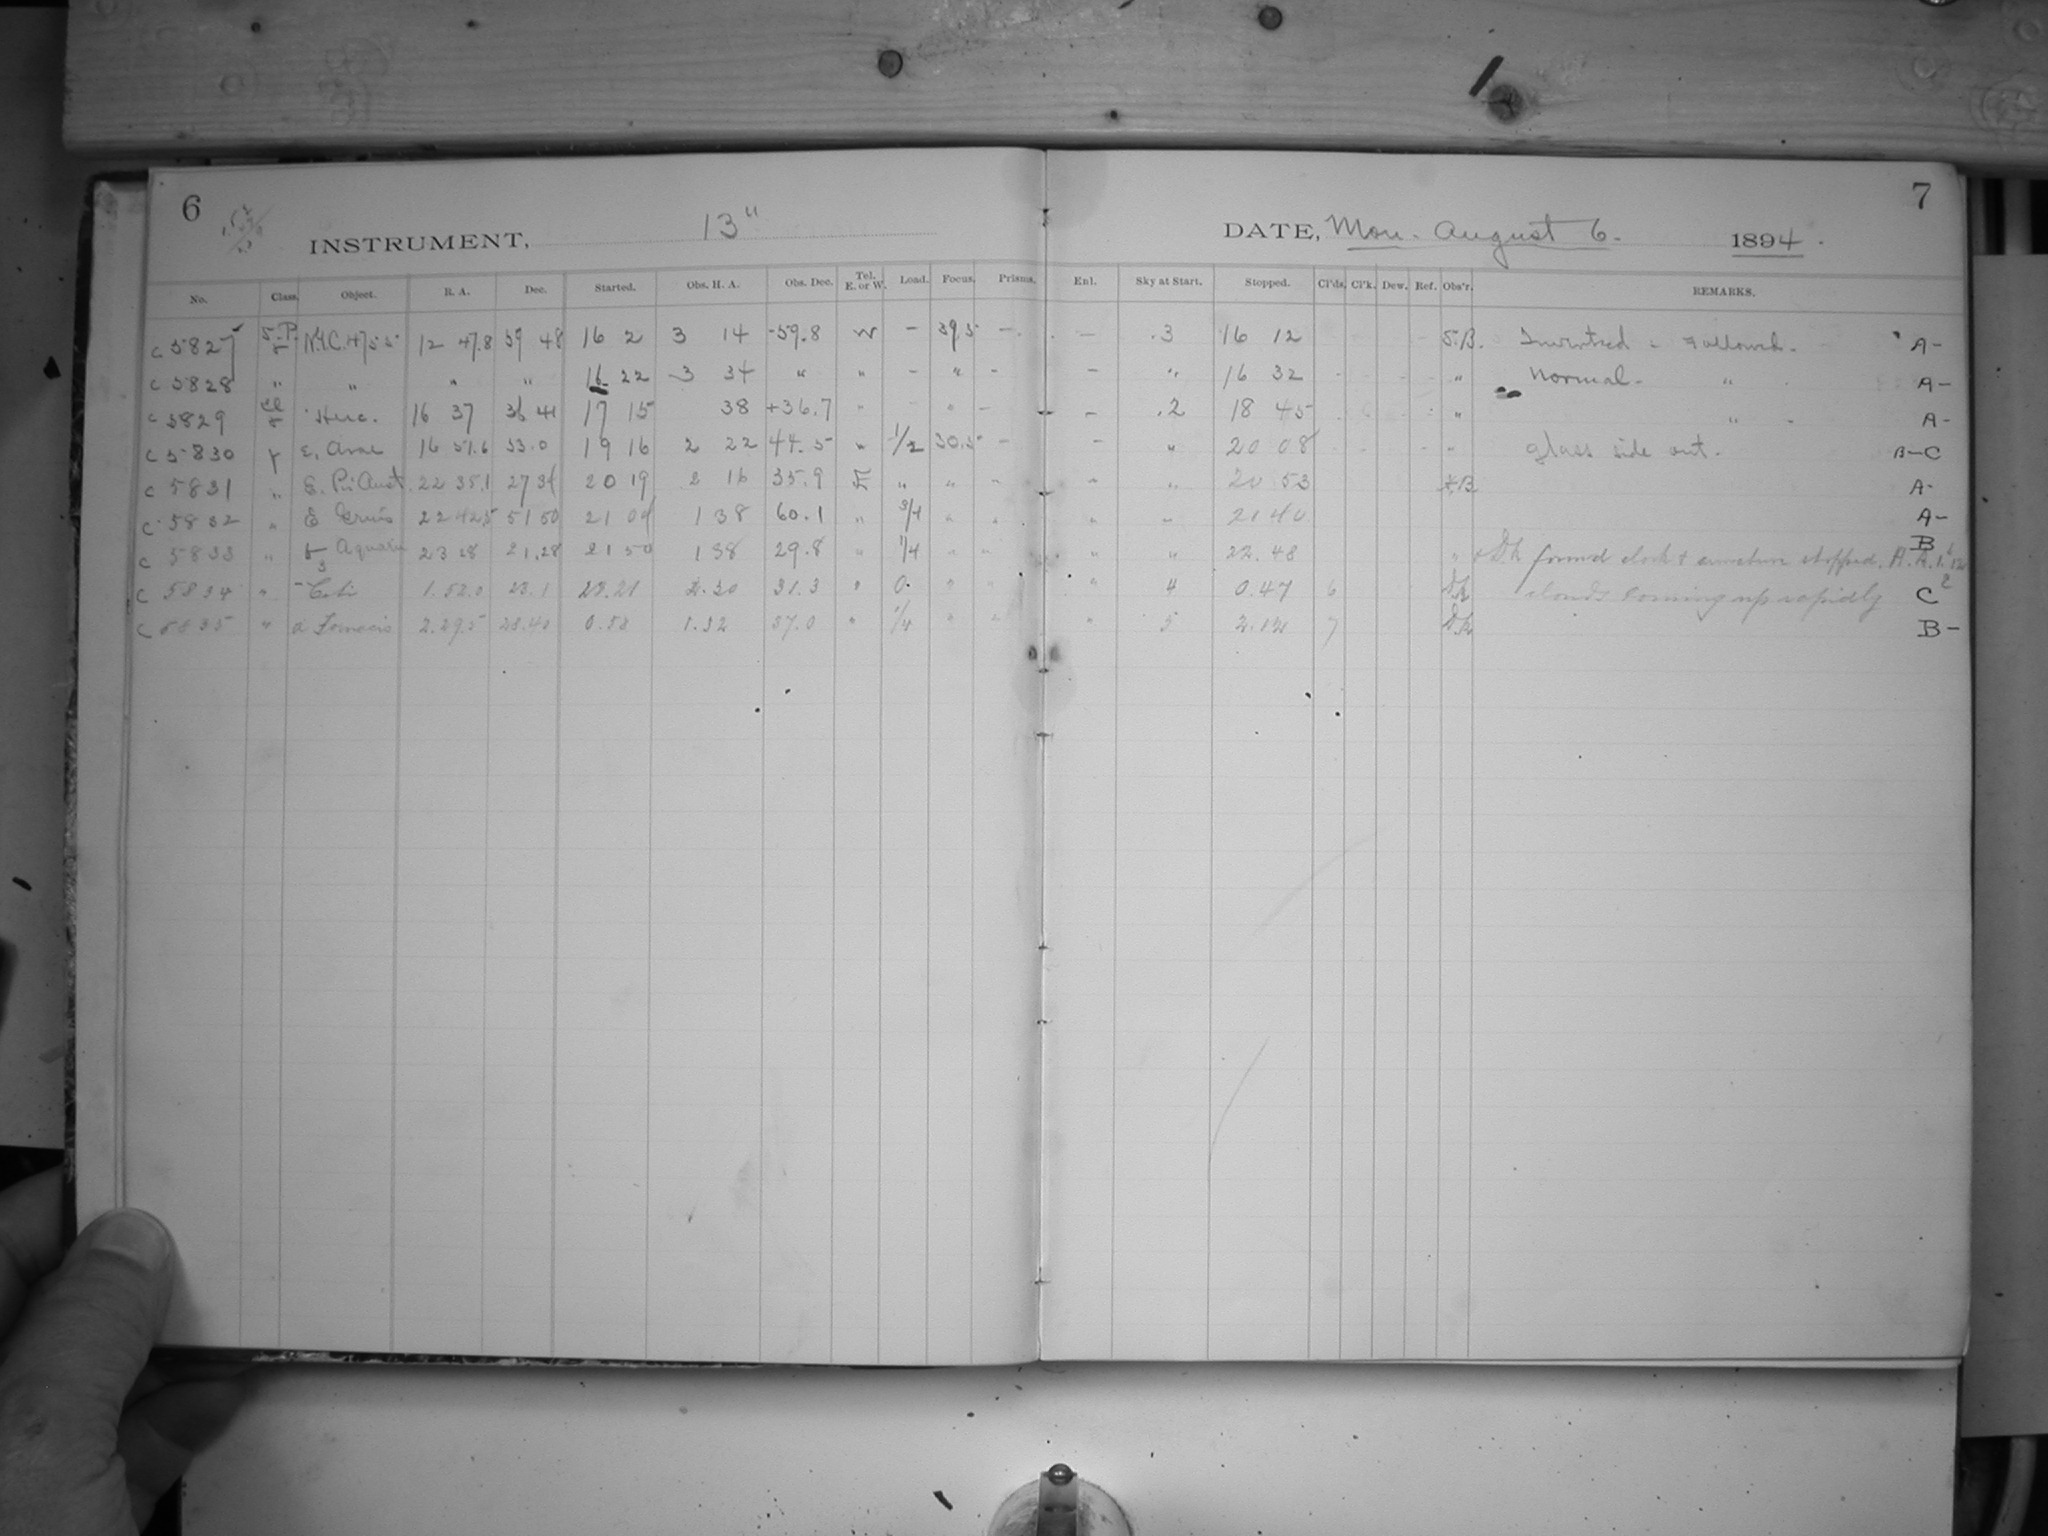 6
INSTRUMENT, 13"
No. Class. Object. R. A. Dec. Started. Obs. H. A. Obs. Dec. Tel. E. or W. Load. Focus. Prisms.
c 5827 S.P. 12 47.8 59 48 16 2 3 14 -59.8 W - 39.5 -
c 5828 " " " " 16 22 3 34 " " - " -
c 5829 Cl Herc. 16 37 36 41 17 15 38 +36.7 " - " -
c 5830 γ ε. Arae 16 51.6 53.0 19 16 2 22 44.5 " 1/2 30.5 -
c 5831 " 22 35.1 27 34 20 19 2 16 35.9 E " " -
c 5832 " ε Gruis 22 42.5 51 50 21 04 1 38 60.1 " 3/4 " "
c 5833 " Aquarii 23 18 21.28 21 50 1 38 29.8 " 1/4 " "
c 5834 " Ceti 1.52.0 23.1 2.30 31.3 " 0. " "
c 5835 " α Fornacis 2.29.5 28.40 0.58 1.32 37.0 " 1/4 " "
7
DATE, Mon. August 6. 1894.
Enl. Sky at Start. Stopped. Cl'ds. Cl'k. Dew. Ref. Obs'r. REMARKS.
- .3 16 12 S.B. Inverted - Followed. A-
- " 16 32 " Normal. " A-
- .2 18 45 " " A-
- " 20 08 " glass side out. B-C
" " 20 53 A-
" " 21 40 A-
" " 22.48 " found clock & stopped. H.A. B
" 4 0.47 6 clouds coming up rapidly C
" 5 2.12 7 B-